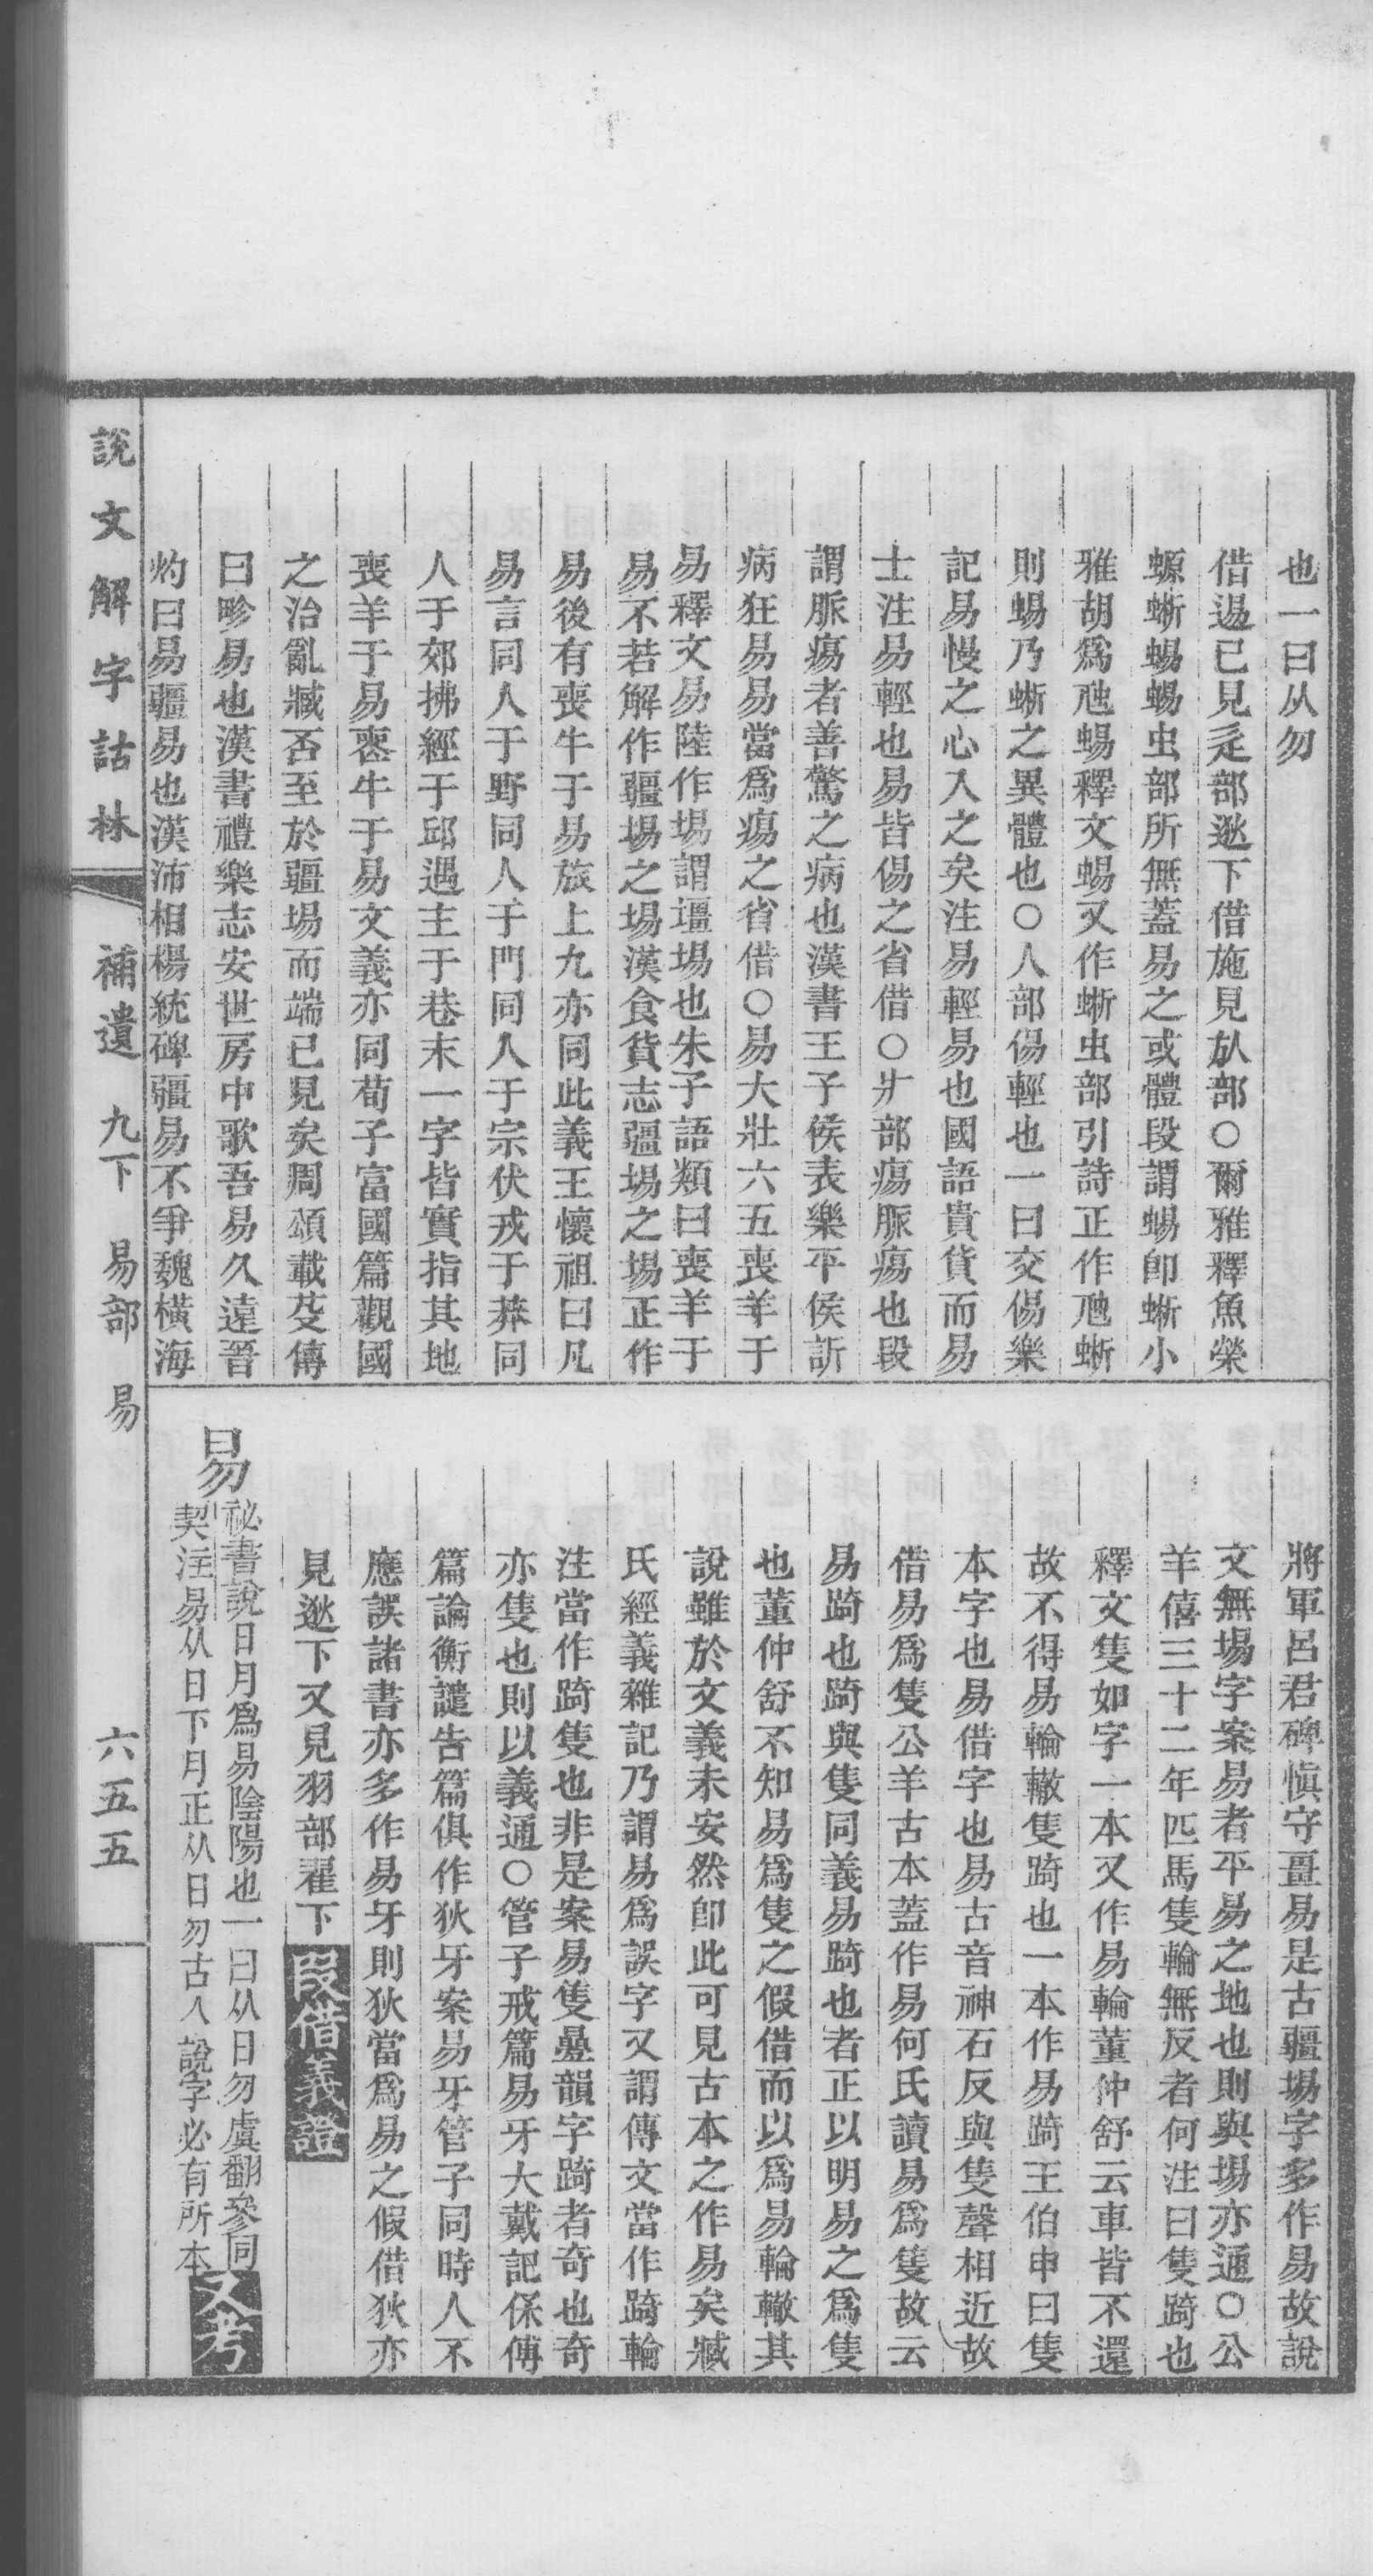 也一曰从勿
借逷已見辵部逖下借施見㫃部○爾雅釋魚榮
螈蜥蜴蜴虫部所無蓋易之或體段謂蜴卽蜥小
雅胡爲虺蜴釋文蜴又作蜥虫部引詩正作虺蜥
則蜴乃蜥之異體也○人部傷輕也一曰交傷樂
記易慢之心入之矣注易輕易也國語貴貨而易
士注易輕也易皆傷之省借○疒部瘍脈瘍也段
謂脈瘍者善驚之病也漢書王子侯表樂平侯訢
病狂易易當爲瘍之省借○易大壯六五喪羊于
易釋文易陸作場謂壃場也朱子語類曰喪羊于
易不若解作疆場之場漢食貨志疆場之場正作
易後有喪牛于易旅上九亦同此義王懷祖曰凡
易言同人于野同人于門同人于宗伏戎于莽同
人于郊拂經于邱遇主于巷末一字皆實指其地
喪羊于易喪牛于易文義亦同荀子富國篇觀國
之治亂臧否至於疆場而端已見矣周頌載芟傳
曰畛易也漢書禮樂志安世房中歌吾易久遠晉
灼曰易疆易也漢沛相楊統碑疆易不爭魏橫海
將軍呂君碑愼守畺易是古疆場字多作易故說
文無場字案易者平易之地也則與場亦通○公
羊僖三十二年匹馬隻輪無反者何注曰隻踦也
釋文隻如字一本又作易輪董仲舒云車皆不還
故不得易輪轍隻踦也一本作易踦王伯申曰隻
本字也易借字也易古音神石反與隻聲相近故
借易爲隻公羊古本蓋作易何氏讀易爲隻故云
易踦也踦與隻同義易踦也者正以明易之爲隻
也董仲舒不知易爲隻之假借而以爲易輪轍其
說雖於文義未安然卽此可見古本之作易矣臧
氏經義雜記乃謂易爲誤字又謂傳文當作踦輪
注當作踦隻也非是案易隻疊韻字踦者奇也奇
亦隻也則以義通○管子戒篇易牙大戴記保傅
篇論衡譴告篇俱作狄牙案易牙管子同時人不
應誤諸書亦多作易牙則狄當爲易之假借狄亦
見逖下又見羽部翟下 叚借義證
易 祕書說日月爲易陰陽也一曰从日勿虞翻參同
契注易从日下月正从日勿古人說字必有所本 又考
說文解字詁林 補遺 九下 易部 易 六五五